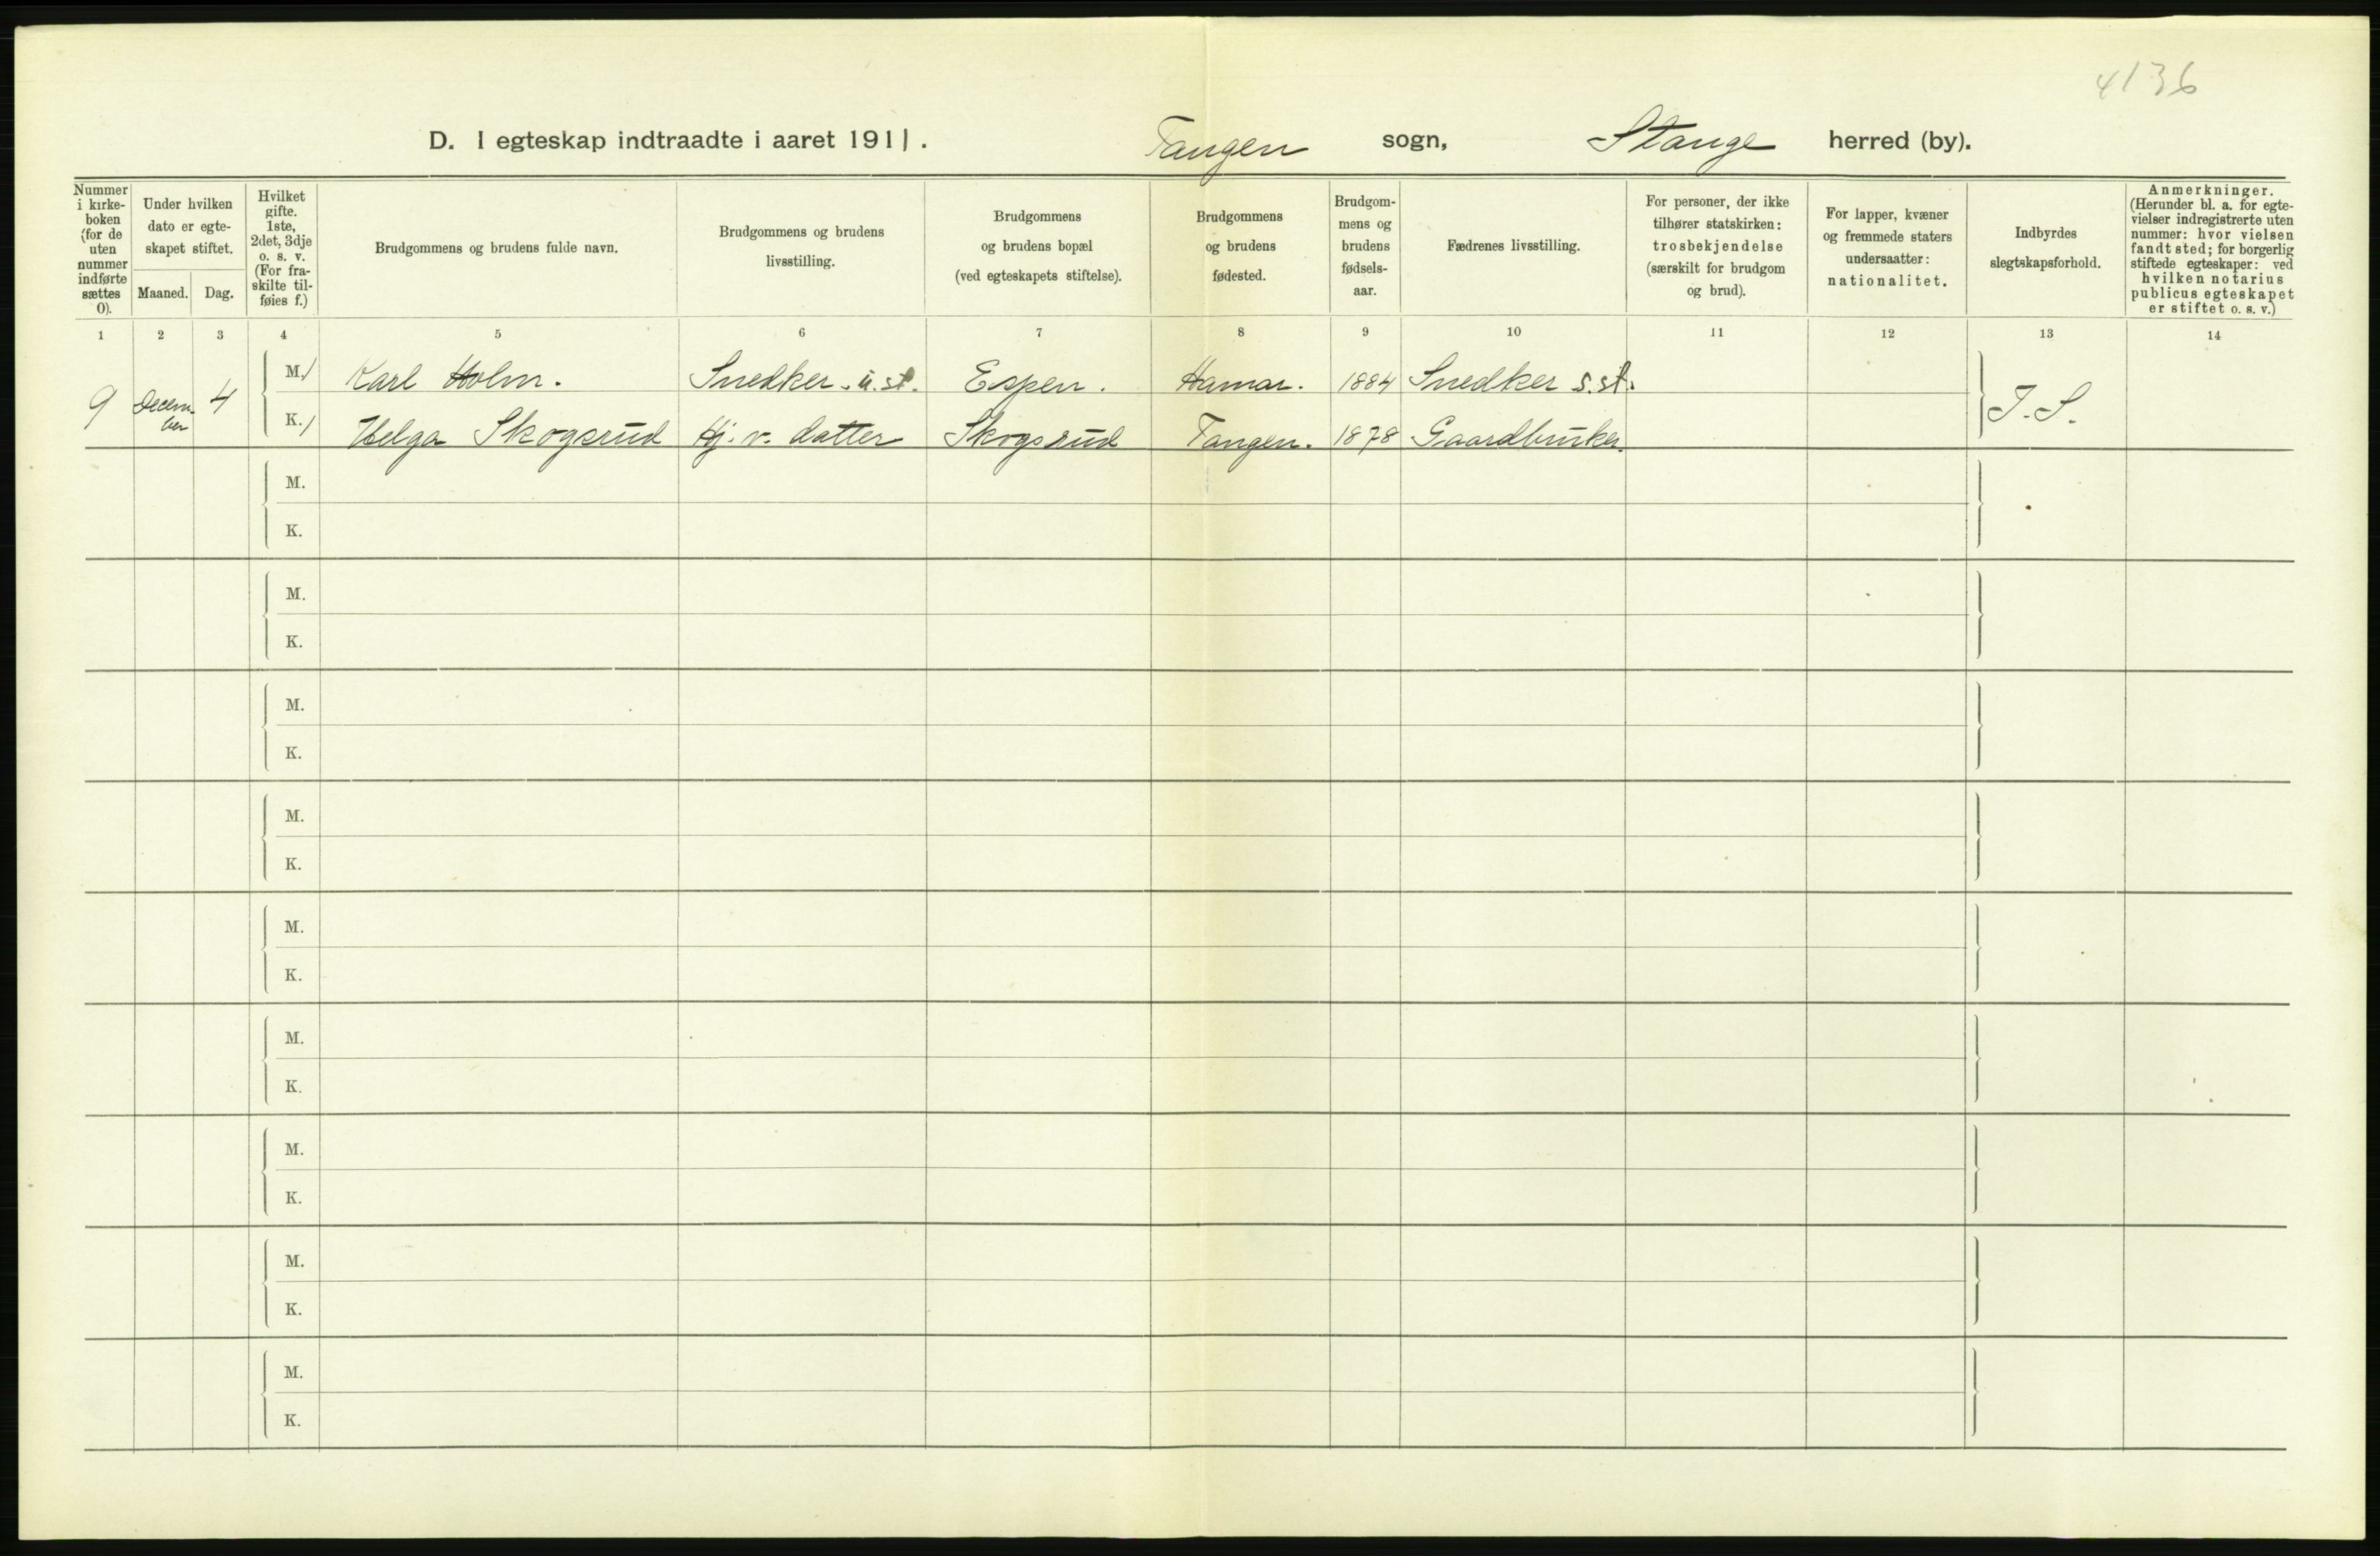 4136
D. I egteskap indtraadte i aaret 1911. Tangen sogn, Stange herred (by).
Nummer i kirke-boken (for de uten nummer indførte sættes 0).
Under hvilken dato er egte-skapet stiftet.
Maaned. Dag.
Hvilket gifte. 1ste, 2det, 3dje o. s. v. (For fra-skilte til-føies f.)
Brudgommens og brudens fulde navn.
Brudgommens og brudens livsstilling.
Brudgommens og brudens bopæl (ved egteskapets stiftelse).
Brudgommens og brudens fødested.
Brudgom-mens og brudens fødsels-aar.
Fædrenes livsstilling.
For personer, der ikke tilhører statskirken: trosbekjendelse (særskilt for brudgom og brud).
For lapper, kvæner og fremmede staters undersaatter: nationalitet.
Indbyrdes slegtskapsforhold.
Anmerkninger. (Herunder bl. a. for egte-vielser indregistrerte uten nummer: hvor vielsen fandt sted; for borgerlig stiftede egteskaper: ved hvilken notarius publicus egteskapet er stiftet o. s. v.)
1 2 3 4 5 6 7 8 9 10 11 12 13 14
9 Decem-ber 4
M. 1 Karl Holm. Snedker. u. st. Espen. Hamar. 1884 Snedker s. st.
K. 1 Helga Skogsrud Hj. v. datter Skogsrud Tangen. 1878 Gaardbruker.
I. S.
M.
K.
M.
K.
M.
K.
M.
K.
M.
K.
M.
K.
M.
K.
M.
K.
M.
K.